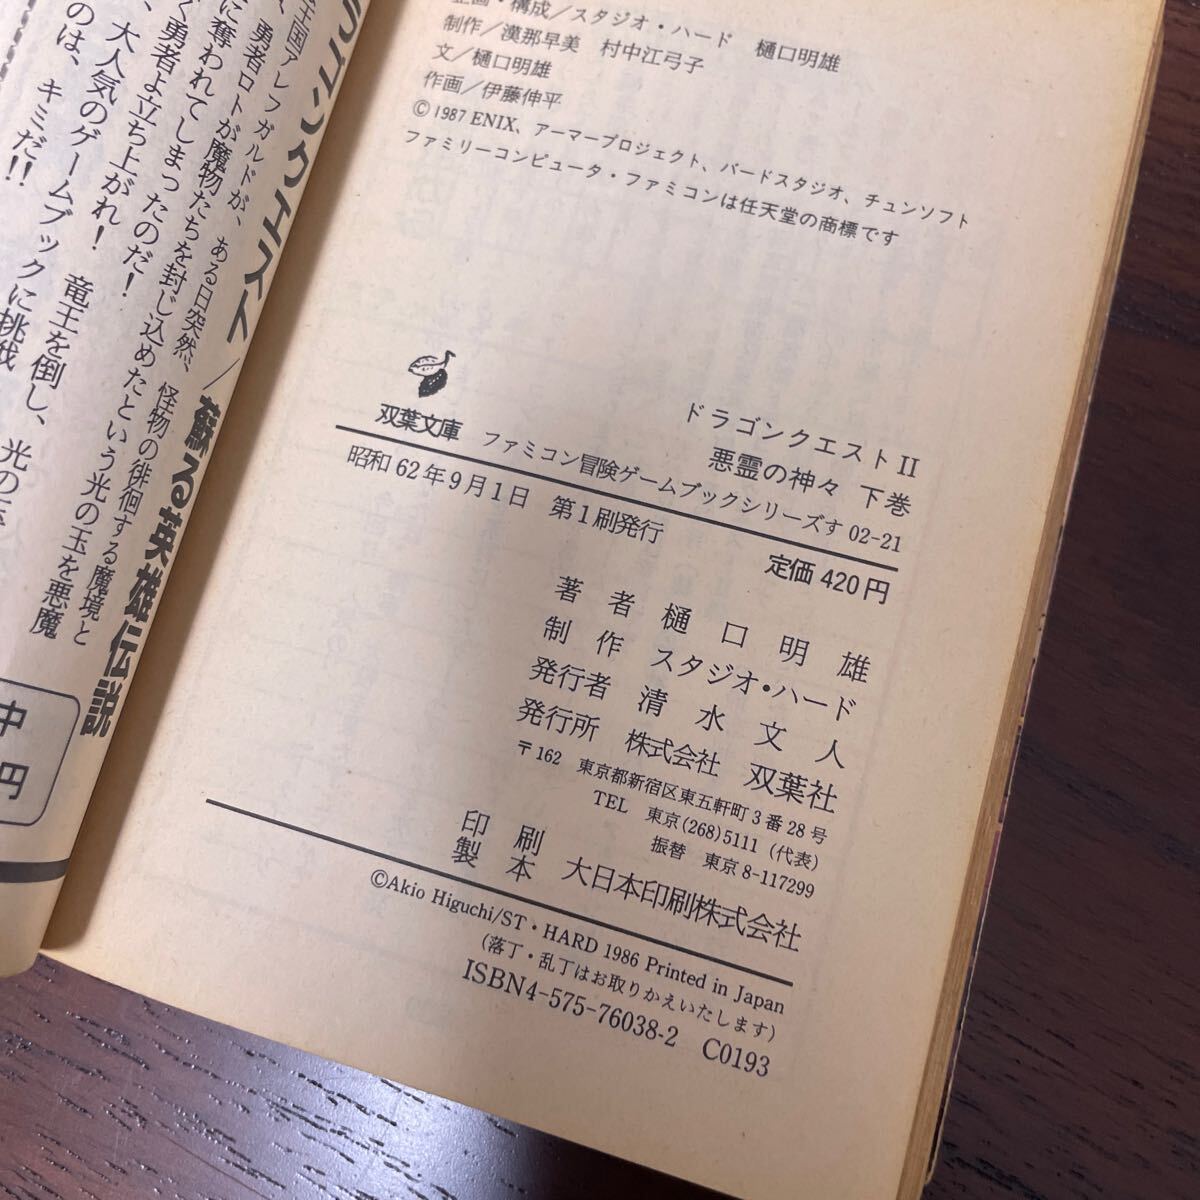 企画・構成／スタジオ・ハード 樋口明雄
制作／漠那早美 村中江弓子
文／樋口明雄
作画／伊藤伸平
©1987 ENIX、アーマープロジェクト、バードスタジオ、チュンソフト
ファミリーコンピュータ・ファミコンは任天堂の商標です
ドラゴンクエストII
悪霊の神々 下巻
双葉文庫 ファミコン冒険ゲームブックシリーズす 02-21
昭和62年9月1日 第1刷発行
定価 420円
著者 樋口明雄
制作 スタジオ・ハード
発行者 清水文人
発行所 株式会社 双葉社
〒162 東京都新宿区東五軒町3番28号
TEL 東京(268)5111(代表)
振替 東京8-117299
印刷
製本 大日本印刷株式会社
©Akio Higuchi/ST・HARD 1986 Printed in Japan
(落丁・乱丁はお取りかえいたします)
ISBN4-575-76038-2 C0193
ラゴンクエスト／蘇る英雄伝説
王国アレフガルドが、ある日突然、怪物の徘徊する魔境と
勇者ロトが魔物たちを封じ込めたという光の玉を悪魔
に奪われてしまったのだ！
勇者よ立ち上がれ！ 竜王を倒し、光の玉
、大人気のゲームブックに挑戦
のは、キミだ!!
中
円